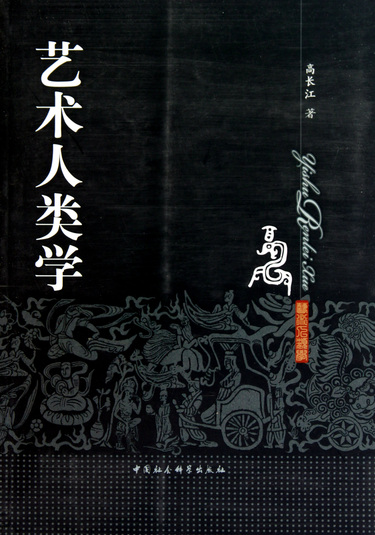 艺术人类学
高长江 著
Yishu Renlei Xue
中国社会科学出版社